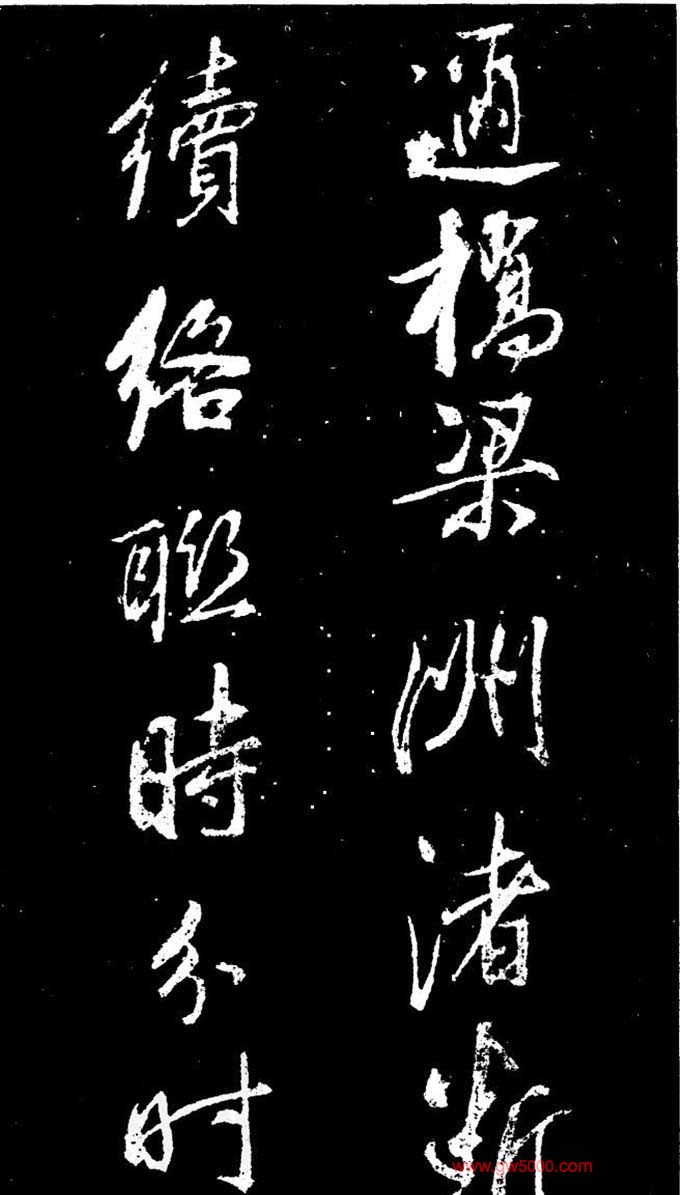 橋梁洲渚斷
續絡聯時分时
www.gw5000.com